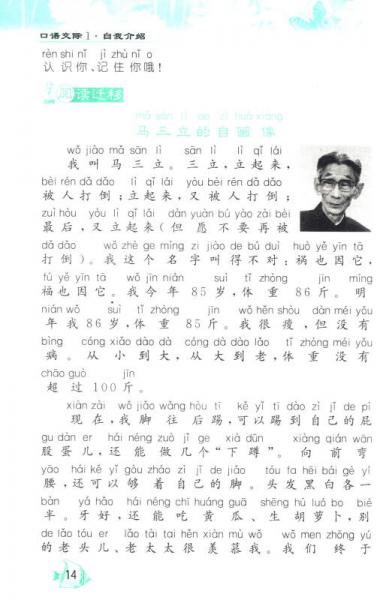 口语交际1·自我介绍
rèn shi nǐ jì zhù nǐ o
认识你、记住你哦!
阅读迁移
mǎ sān lì de zì huà xiàng
马三立的自画像
wǒ jiào mǎ sān lì sān lì lì qǐ lái
我叫马三立。三立,立起来,
bèi rén dǎ dǎo lì qǐ lái yòu bèi rén dǎ dǎo
被人打倒;立起来,又被人打倒;
zuì hòu yòu lì qǐ lái dàn yuàn bú yào zài bèi
最后,又立起来(但愿不要再被
dǎ dǎo wǒ zhè ge míng zi jiào de bú duì huò yě yīn tā
打倒)。我这个名字叫得不对:祸也因它,
fú yě yīn tā wǒ jīn nián suì tǐ zhòng jīn míng
福也因它。我今年85岁,体重86斤。明
nián wǒ suì tǐ zhòng jīn wǒ hěn shòu dàn méi yǒu
年我86岁,体重85斤。我很瘦,但没有
bìng cóng xiǎo dào dà cóng dà dào lǎo tǐ zhòng méi yǒu
病。从小到大,从大到老,体重没有
chāo guò jīn
超过100斤。
xiàn zài wǒ jiǎo wǎng hòu tī kě yǐ tī dào zì jǐ de pì
现在,我脚往后踢,可以踢到自己的屁
gu dàn er hái néng zuò jǐ ge xià dūn xiàng qián wān
股蛋儿,还能做几个“下蹲”。向前弯
yāo hái kě yǐ gòu zháo zì jǐ de jiǎo tóu fa hēi bái gè yí
腰,还可以够着自己的脚。头发黑白各一
bàn yá hǎo hái néng chī huáng guā shēng hú luó bo bié
半。牙好,还能吃黄瓜、生胡萝卜,别
de lǎo tóu er lǎo tài tai hěn xiàn mù wǒ wǒ men zhōng yú
的老头儿、老太太很羡慕我。我们终于
14